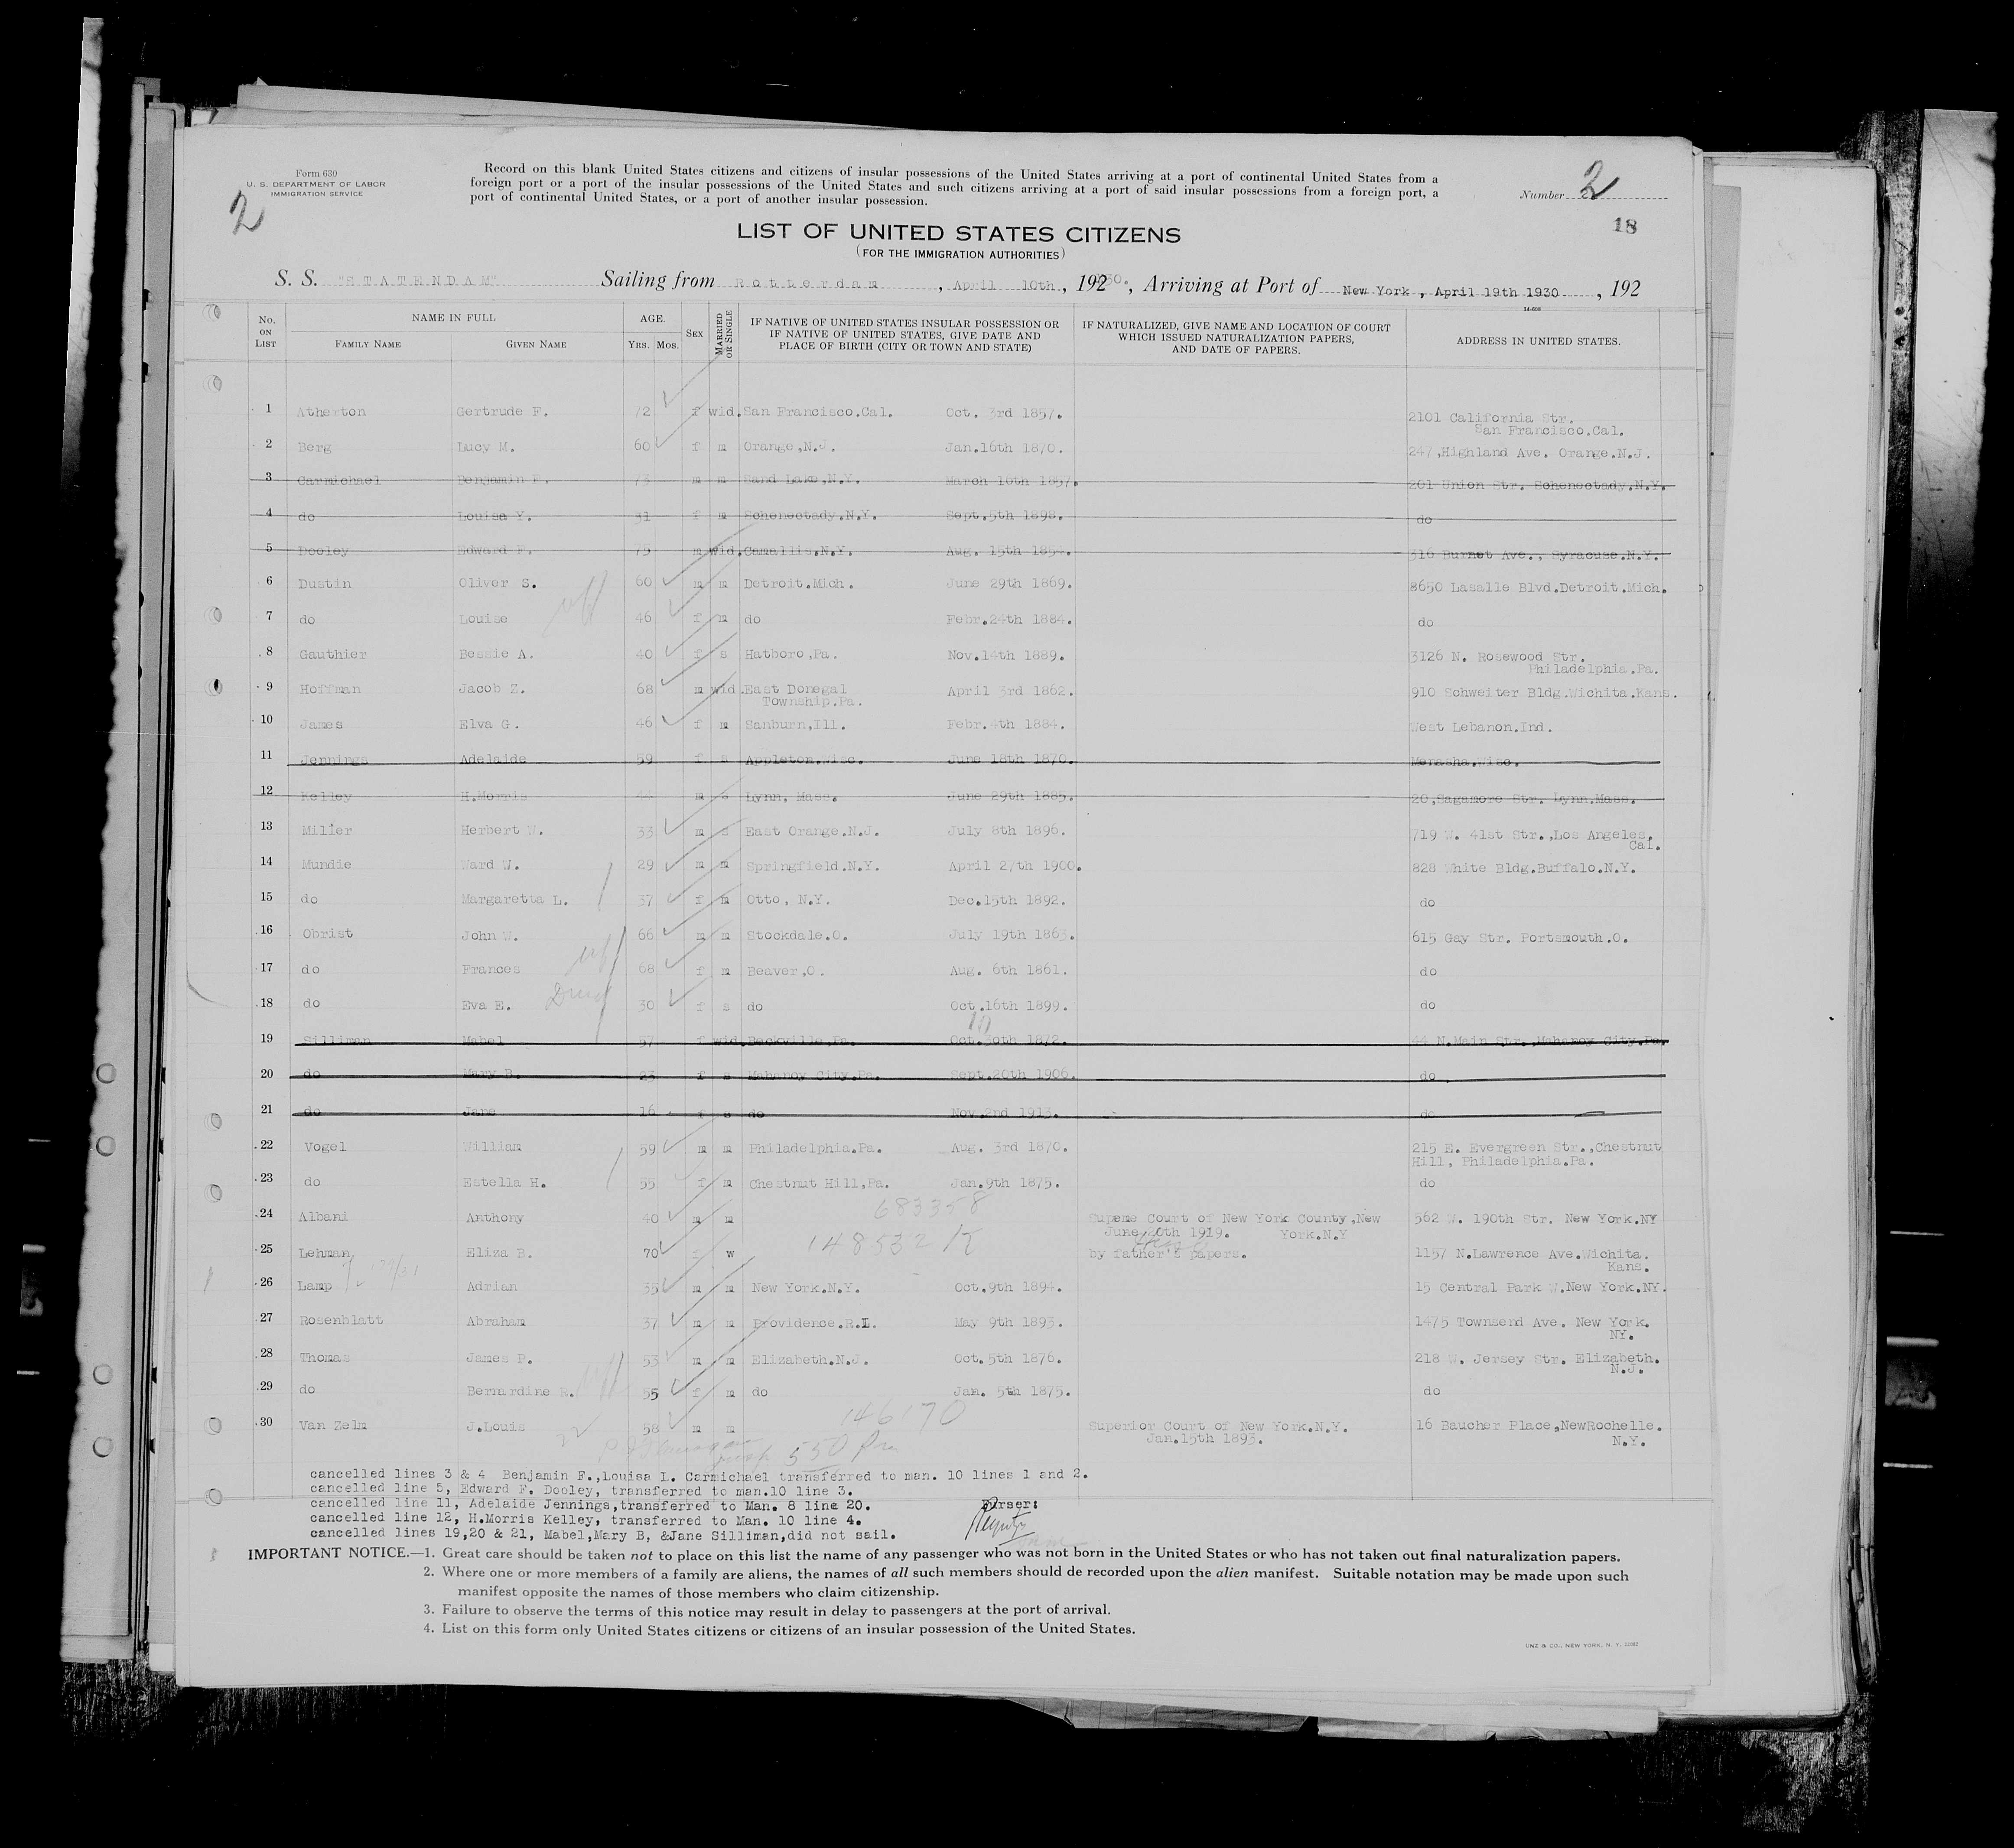 Form 630
U. S. DEPARTMENT OF LABOR
IMMIGRATION SERVICE
2
Record on this blank United States citizens and citizens of insular possessions of the United States arriving at a port of continental United States from a
foreign port or a port of the insular possessions of the United States and such citizens arriving at a port of said insular possessions from a foreign port, a
port of continental United States, or a port of another insular possession.
Number 2
18
LIST OF UNITED STATES CITIZENS
(FOR THE IMMIGRATION AUTHORITIES)
S. S. "STATENDAM" Sailing from Rotterdam, April 10th, 1930., Arriving at Port of New York, April 19th 1930, 192
14-608
No. ON LIST NAME IN FULL FAMILY NAME GIVEN NAME AGE. YRS. MOS. SEX MARRIED OR SINGLE IF NATIVE OF UNITED STATES INSULAR POSSESSION OR IF NATIVE OF UNITED STATES, GIVE DATE AND PLACE OF BIRTH (CITY OR TOWN AND STATE) IF NATURALIZED, GIVE NAME AND LOCATION OF COURT WHICH ISSUED NATURALIZATION PAPERS, AND DATE OF PAPERS. ADDRESS IN UNITED STATES.
1 Atherton Gertrude F. 72 f wid. San Francisco.Cal. Oct. 3rd 1857. 2101 California Str.
San Francisco.Cal.
2 Berg Lucy M. 60 f m Orange,N.J. Jan.16th 1870. 247,Highland Ave. Orange.N.J.
3 Carmichael Benjamin F. 73 m m Sand Lake,N.Y. March 10th 1857. 201 Union Str. Schenectady.N.Y.
4 do Louisa Y. 31 f m Schenectady.N.Y. Sept.5th 1898. do
5 Dooley Edward F. 75 m wid. Camallis.N.Y. Aug. 15th 1854. 316 Burnet Ave., Syracuse.N.Y.
6 Dustin Oliver S. 60 m m Detroit.Mich. June 29th 1869. 8650 Lasalle Blvd.Detroit.Mich.
7 do Louise 46 f m do Febr.24th 1884. do
8 Gauthier Bessie A. 40 f s Hatboro,Pa. Nov.14th 1889. 3126 N. Rosewood Str.
Philadelphia.Pa.
9 Hoffman Jacob Z. 68 m wid. East Donegal April 3rd 1862. 910 Schweiter Bldg.Wichita.Kans.
Township.Pa.
10 James Elva G. 46 f m Sanburn,Ill. Febr.4th 1884. West Lebanon.Ind.
11 Jennings Adelaide 59 f s Appleton.Wisc. June 18th 1870. Menasha.Wisc.
12 Kelley H.Morris 44 m s Lynn, Mass. June 29th 1885. 20,Sagamore Str. Lynn.Mass.
13 Miller Herbert W. 33 m s East Orange.N.J. July 8th 1896. 719 W. 41st Str.,Los Angeles,
Cal.
14 Mundie Ward W. 29 m m Springfield.N.Y. April 27th 1900. 828 White Bldg.Buffalo.N.Y.
15 do Margaretta L. 37 f m Otto, N.Y. Dec.15th 1892. do
16 Obrist John W. 66 m m Stockdale.O. July 19th 1863. 615 Gay Str. Portsmouth.O.
17 do Frances 68 f m Beaver,O. Aug. 6th 1861. do
18 do Eva E. 30 f s do Oct.16th 1899. do
19 Silliman Mabel 57 f wid. Beckville.Pa. Oct.30th 1872. 44 N.Main Str. Mahanoy City.Pa.
20 do Mary B. 23 f s Mahanoy City.Pa. Sept.20th 1906. do
21 do Jane 16 f s do Nov.2nd 1913. do
22 Vogel William 59 m m Philadelphia.Pa. Aug. 3rd 1870. 215 E. Evergreen Str.,Chestnut
Hill, Philadelphia.Pa.
23 do Estella H. 55 f m Chestnut Hill,Pa. Jan.9th 1875. do
683358
24 Albani Anthony 40 m m Supeme Court of New York County,New 562 W. 190th Str. New York.NY
June 20th 1919. York.N.Y
148532
25 Lehman Eliza B. 70 f w by father's papers. 1157 N.Lawrence Ave.Wichita.
Kans.
26 Lamp Adrian 35 m m New York.N.Y. Oct.9th 1894. 15 Central Park W.New York.NY.
27 Rosenblatt Abraham 37 m m Providence.R.I. May 9th 1893. 1475 Townsend Ave. New York.
NY.
28 Thomas James P. 53 m m Elizabeth.N.J. Oct.5th 1876. 218 W. Jersey Str. Elizabeth.
N.J.
29 do Bernardine R. 55 f m do Jan. 5th 1875. do
146170
30 Van Zelm J.Louis 58 m m Superior Court of New York.N.Y. 16 Baucher Place,NewRochelle.
Jan.15th 1893. N.Y.
cancelled lines 3 & 4 Benjamin F.,Louisa L. Carmichael transferred to man. 10 lines 1 and 2.
cancelled line 5, Edward F. Dooley, transferred to man.10 line 3.
cancelled line 11, Adelaide Jennings,transferred to Man. 8 line 20.
Purser:
cancelled line 12, H.Morris Kelley, transferred to Man. 10 line 4.
cancelled lines 19,20 & 21, Mabel,Mary B, &Jane Silliman,did not sail.
IMPORTANT NOTICE.—1. Great care should be taken not to place on this list the name of any passenger who was not born in the United States or who has not taken out final naturalization papers.
2. Where one or more members of a family are aliens, the names of all such members should de recorded upon the alien manifest. Suitable notation may be made upon such
manifest opposite the names of those members who claim citizenship.
3. Failure to observe the terms of this notice may result in delay to passengers at the port of arrival.
4. List on this form only United States citizens or citizens of an insular possession of the United States.
UNZ & CO., NEW YORK, N. Y.